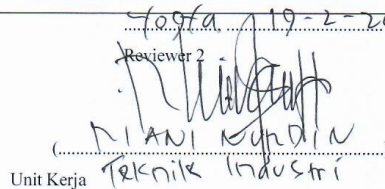 Yogya, 19-2-20
Reviewer 2
(RIANI NURDIN
Unit Kerja Teknik Industri